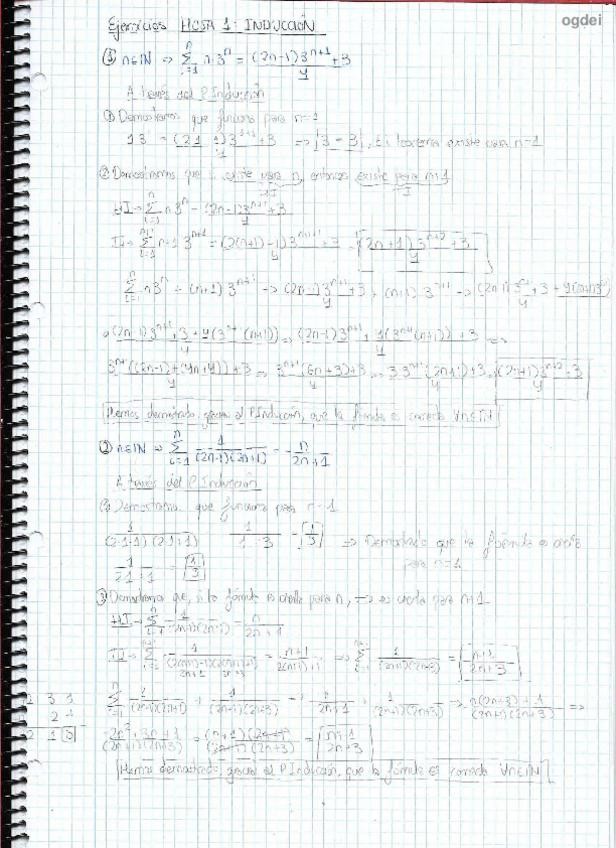 ogdei
Ejercicios HOJA 1: INDUCCIÓN
① n∈ℕ ⇒ Σ_{i=1}^{n} n·3^n = ((2n-1)3^{n+1}+3)/4
A través del P.Inducción
① Demostramos que funciona para n=1
1·3 = ((2·1-1)3^{1+1}+3)/4 ⇒ 3=3, existe para n=1
② Demostramos que si existe para n, entonces existe para n+1
HI→ Σ_{i=1}^{n} n3^n = ((2n-1)3^{n+1}+3)/4
TI→ Σ_{i=1}^{n+1} n+1 3^{n+1} = ((2(n+1)-1)3^{n+1+1}+3)/4 = ((2n+1)3^{n+2}+3)/4
Σ_{i=1}^{n} n3^n + (n+1)3^{n+1} → ((2n-1)3^{n+1}+3)/4 + (n+1)·3^{n+1} → ((2n-1)3^{n+1}+3+4(n+1)3^{n+1})/4
→ ((2n-1)3^{n+1}+3+4(3^{n+1}(n+1)))/4 ⇒ ((2n-1)3^{n+1}+4(3^{n+1}(n+1))+3)/4 ⇒
(3^{n+1}((2n-1)+(4n+4))+3)/4 ⇒ (3^{n+1}(6n+3)+3)/4 ⇒ (3·3^{n+1}(2n+1)+3)/4 = ((2n+1)3^{n+2}+3)/4
Hemos demostrado, gracias al P.Inducción, que la fórmula es correcta ∀n∈ℕ
② n∈ℕ ⇒ Σ_{i=1}^{n} 1/((2n-1)(2n+1)) = n/(2n+1)
A través del P.Inducción
① Demostramos que funciona para n=1
1/((2·1-1)(2·1+1)) = 1/(1·3) = 1/3 ⇒ Demostrado que la fórmula es cierta
1/(2·1+1) = 1/3 para n=1
② Demostramos que, si la fórmula es cierta para n, → es cierta para n+1
HI→ Σ_{i=1}^{n} 1/((2n+1)(2n-1)) = n/(2n+1)
TI→ Σ_{i=1}^{n+1} 1/((2(n+1)-1)(2(n+1)+1)) = (n+1)/(2(n+1)+1) ⇒ Σ_{i=1}^{n+1} 1/((2n+1)(2n+3)) = (n+1)/(2n+3)
2 3 1
2 1 0
Σ_{i=1}^{n} 1/((2n-1)(2n+1)) + 1/((2n+1)(2n+3)) → n/(2n+1) + 1/((2n+1)(2n+3)) → (n(2n+3)+1)/((2n+1)(2n+3)) ⇒
(2n²+3n+1)/((2n+1)(2n+3)) = ((n+1)(2n+1))/((2n+1)(2n+3)) = (n+1)/(2n+3)
Hemos demostrado, gracias al P.Inducción, que la fórmula es correcta ∀n∈ℕ